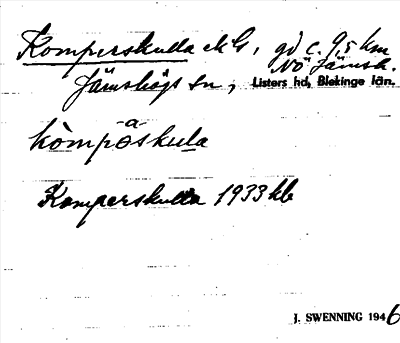 Komperskulla ckG, gd c. 9,5 km
NÖ Jämsh.
Jämshögs sn, Listers hd, Blekinge län.
-a-
kòmpəskula
Komperskulla 1933 kb
J. SWENNING 1946